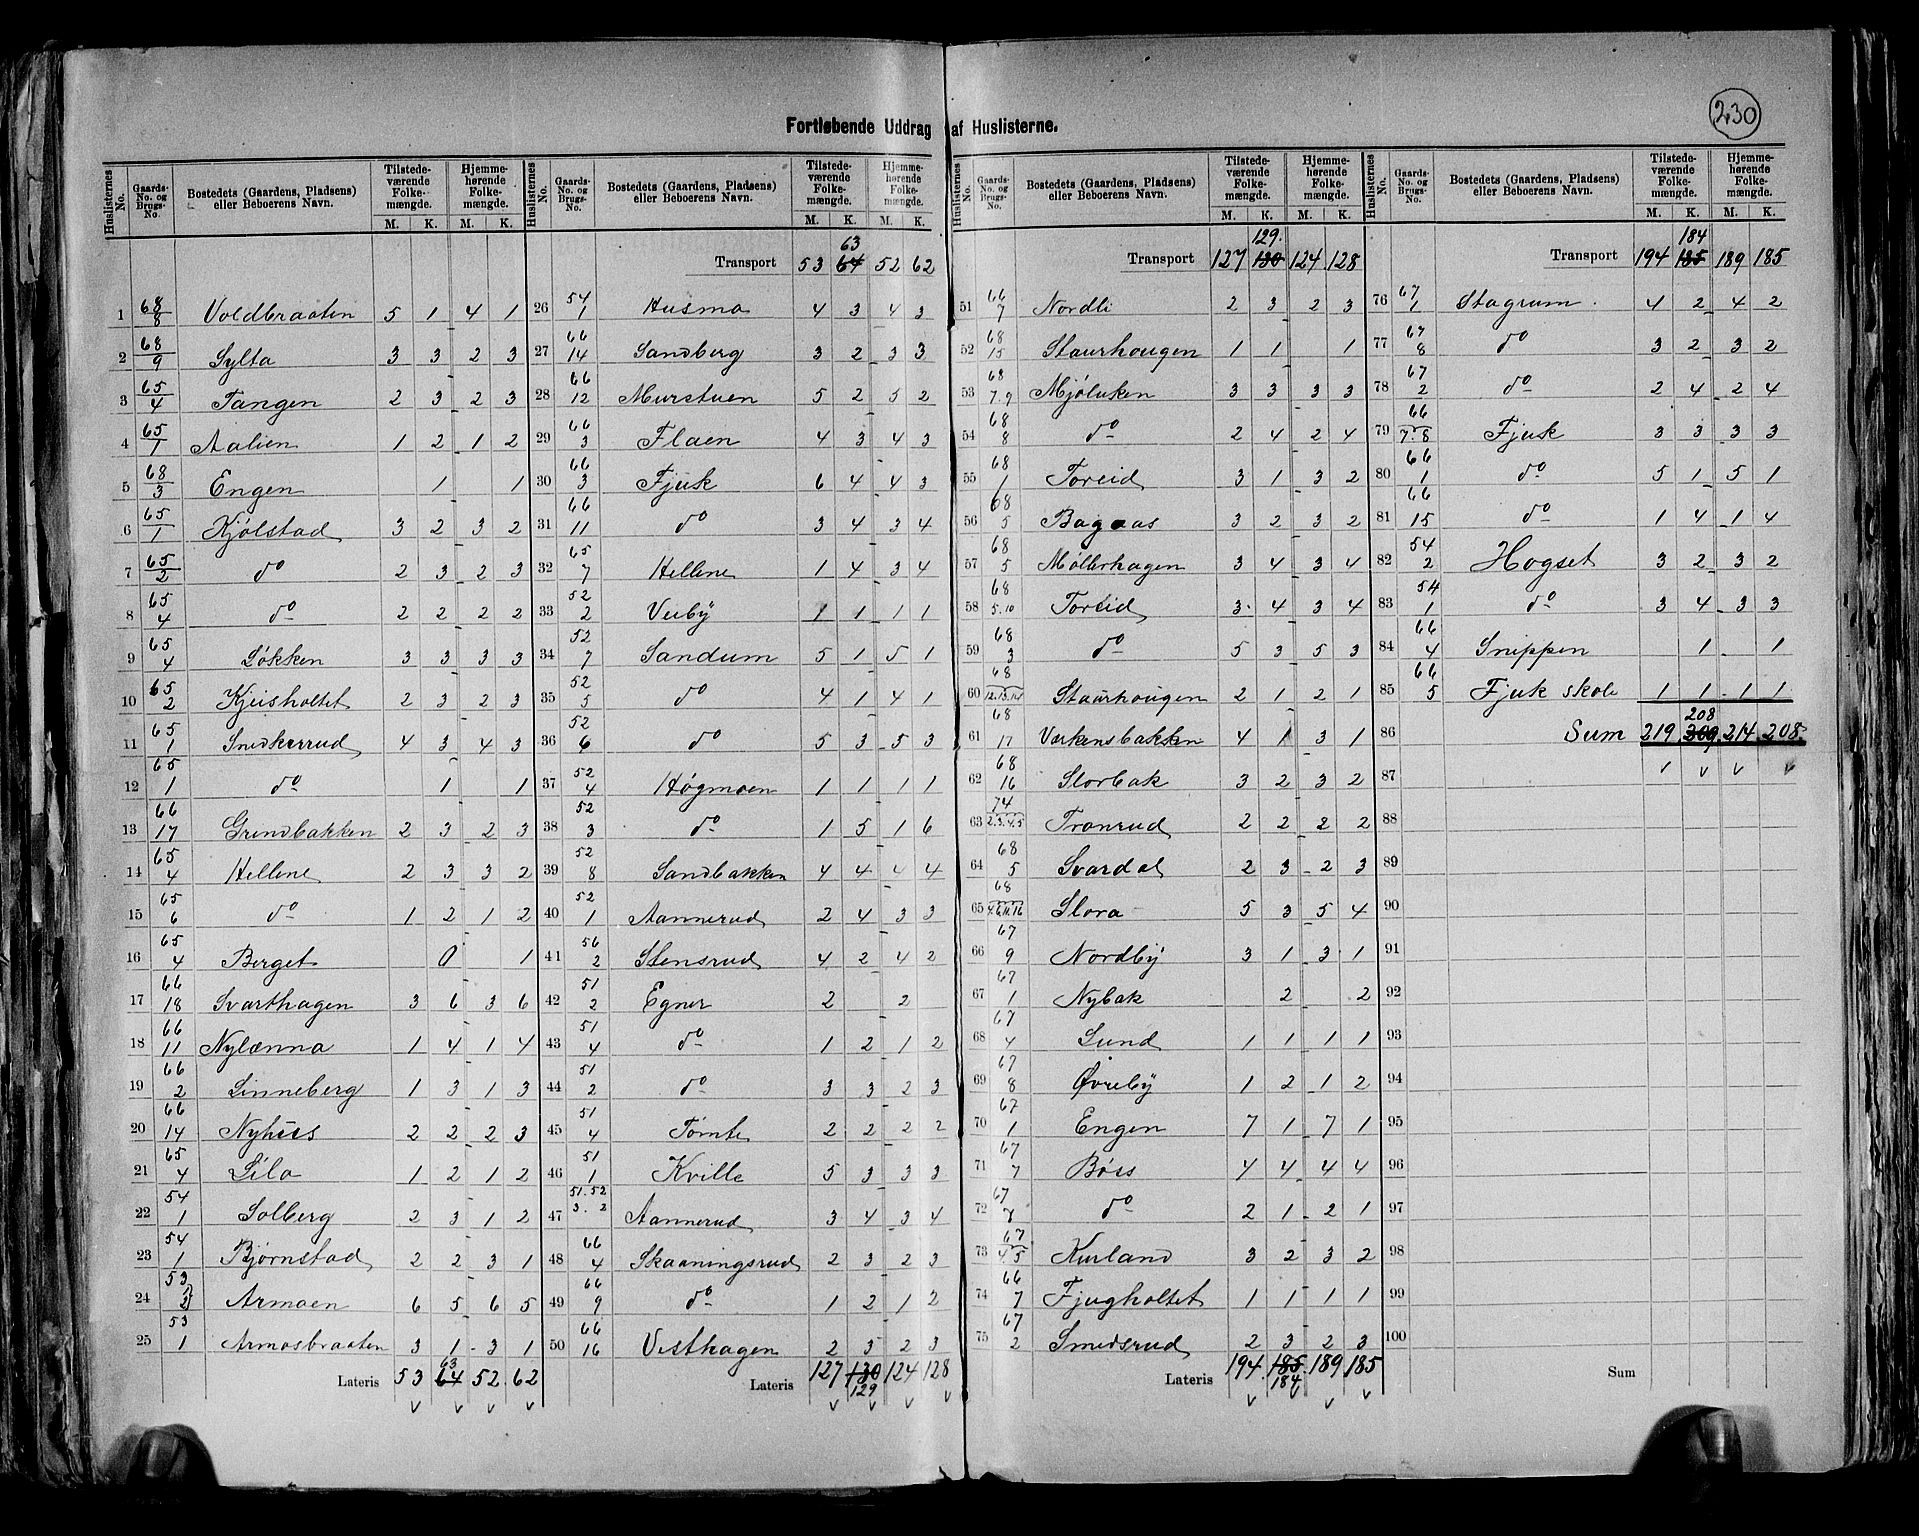 230
Fortløbende Uddrag af Huslisterne.
Huslisternes No. | Gaards-No. og Brugs-No. | Bostedets (Gaardens, Pladsens) eller Beboerens Navn. | Tilstedeværende Folkemængde. M. K. | Hjemmehørende Folkemængde. M. K.
1 68/8 Voldbraaten 5 1 4 1
2 68/9 Sylta 3 3 2 3
3 65/4 Tangen 2 3 2 3
4 65/1 Aalien 1 2 1 2
5 68/3 Engen 1 1
6 65/1 Kjølstad 3 2 3 2
7 65/2 do 2 3 2 3
8 65/4 do 2 2 2 2
9 65/4 Løkken 3 3 3 3
10 65/2 Kjeisholtet 2 3 2 3
11 65/1 Snedkerrud 4 3 4 3
12 65/1 do 1 1
13 66/17 Grindbakken 2 3 2 3
14 65/4 Hellene 2 3 3 2
15 65/6 do 1 2 1 2
16 65/4 Berget 0 1
17 66/18 Svarthagen 3 6 3 6
18 66/11 Nylænna 1 4 1 4
19 66/2 Linneberg 1 3 1 3
20 66/14 Nyhus 2 2 2 3
21 65/4 Lilo 1 2 1 2
22 54/1 Solberg 2 3 1 2
23 54/1 Bjørnstad 2 2 3 1
24 53/2 Armoen 6 5 6 5
25 53/1 Armosbraaten 3 1 3 1
Lateris 53 64 63 52 62
Huslisternes No. | Gaards-No. og Brugs-No. | Bostedets (Gaardens, Pladsens) eller Beboerens Navn. | Tilstedeværende Folkemængde. M. K. | Hjemmehørende Folkemængde. M. K.
Transport 53 64 63 52 62
26 54/1 Husmo 4 3 4 3
27 66/14 Sandberg 3 2 3 3
28 66/12 Murstuen 5 2 5 2
29 66/3 Flaen 4 3 4 3
30 66/3 Fjuk 6 4 4 3
31 66/11 do 3 4 3 4
32 65/7 Hellene 1 4 3 4
33 52/2 Veiby 1 1 1 1
34 52/7 Sandum 5 1 5 1
35 52/5 do 4 1 4 1
36 52/6 do 5 3 5 3
37 52/4 Høgmoen 1 1 1 1
38 52/3 do 1 5 1 6
39 52/8 Sandbakken 4 4 4 4
40 52/1 Aannerud 2 4 3 3
41 56/2 Stensrud 4 2 4 2
42 51/2 Egner 2 2
43 51/4 do 1 2 1 2
44 51/2 do 3 3 2 3
45 51/4 Tømte 2 2 2 2
46 51/1 Kville 5 3 3 3
47 51.52/3.2 Aannerud 3 4 3 4
48 66/4 Skaaningsrud 2 3 2 3
49 66/9 do 1 2 1 2
50 66/16 Vesthagen 2 3 2 3
Lateris 127 130 129 124 128
Huslisternes No. | Gaards-No. og Brugs-No. | Bostedets (Gaardens, Pladsens) eller Beboerens Navn. | Tilstedeværende Folkemængde. M. K. | Hjemmehørende Folkemængde. M. K.
Transport 127 130 129. 124 128
51 66/7 Nordli 2 3 2 3
52 68/15 Staurhougen 1 1 1
53 68/7.9 Mjøluken 3 3 3 3
54 68/8 do 2 4 2 4
55 68/1 Toreid 3 1 3 2
56 68/5 Bagaas 3 2 3 2
57 68/5 Møllerhagen 3 4 3 4
58 68/5.10 Toreid 3 4 3 4
59 68/3 do 5 3 5 3
60 68/12.13.14 Staurhougen 2 1 2 1
61 68/17 Værkensbakken 4 1 3 1
62 68/16 Slorbak 3 2 3 2
63 74/2.3.4.5 Tronrud 2 2 2 2
64 68/5 Svardal 2 3 2 3
65 68/4.6.11.16 Slora 5 3 5 4
66 67/9 Nordby 3 1 3 1
67 67/1 Nybak 2 2
68 67/4 Lund 1 1 1 1
69 67/8 Øvreby 1 2 1 2
70 67/1 Engen 7 1 7 1
71 67/7 Bøss 4 4 4 4
72 67/7 do 2 1 2 1
73 67/4.5 Kurland 3 2 3 2
74 66/7 Fjugholtet 1 1 1 1
75 67/2 Smedsrud 2 3 2 3
Lateris 194 185 184 189 185
Huslisternes No. | Gaards-No. og Brugs-No. | Bostedets (Gaardens, Pladsens) eller Beboerens Navn. | Tilstedeværende Folkemængde. M. K. | Hjemmehørende Folkemængde. M. K.
Transport 194 185 184 189 185
76 67/1 Stagrum 4 2 4 2
77 67/8 do 3 2 3 2
78 67/2 do 2 4 2 4
79 66/7.8 Fjuk 3 3 3 3
80 66/1 do 5 1 5 1
81 66/15 do 1 4 1 4
82 54/2 Hogset 3 2 3 2
83 54/1 do 3 4 3 3
84 66/4 Snippen 1 1
85 66/5 Fjuk skole 1 1 1 1
86 Sum 219 209 208 214 208
87
88
89
90
91
92
93
94
95
96
97
98
99
100
Sum